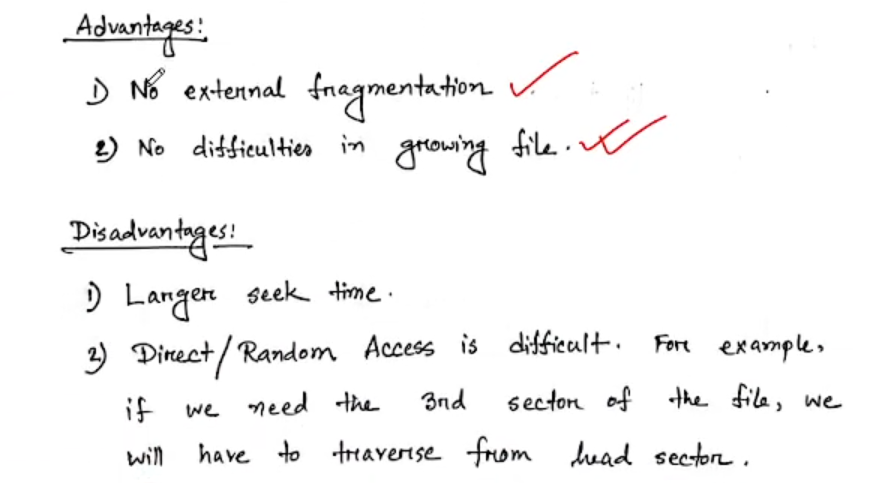 Advantages:
1) No external fragmentation
2) No difficulties in growing file.
Disadvantages:
1) Larger seek time.
2) Direct/Random Access is difficult. For example,
if we need the 3rd sector of the file, we
will have to traverse from head sector.